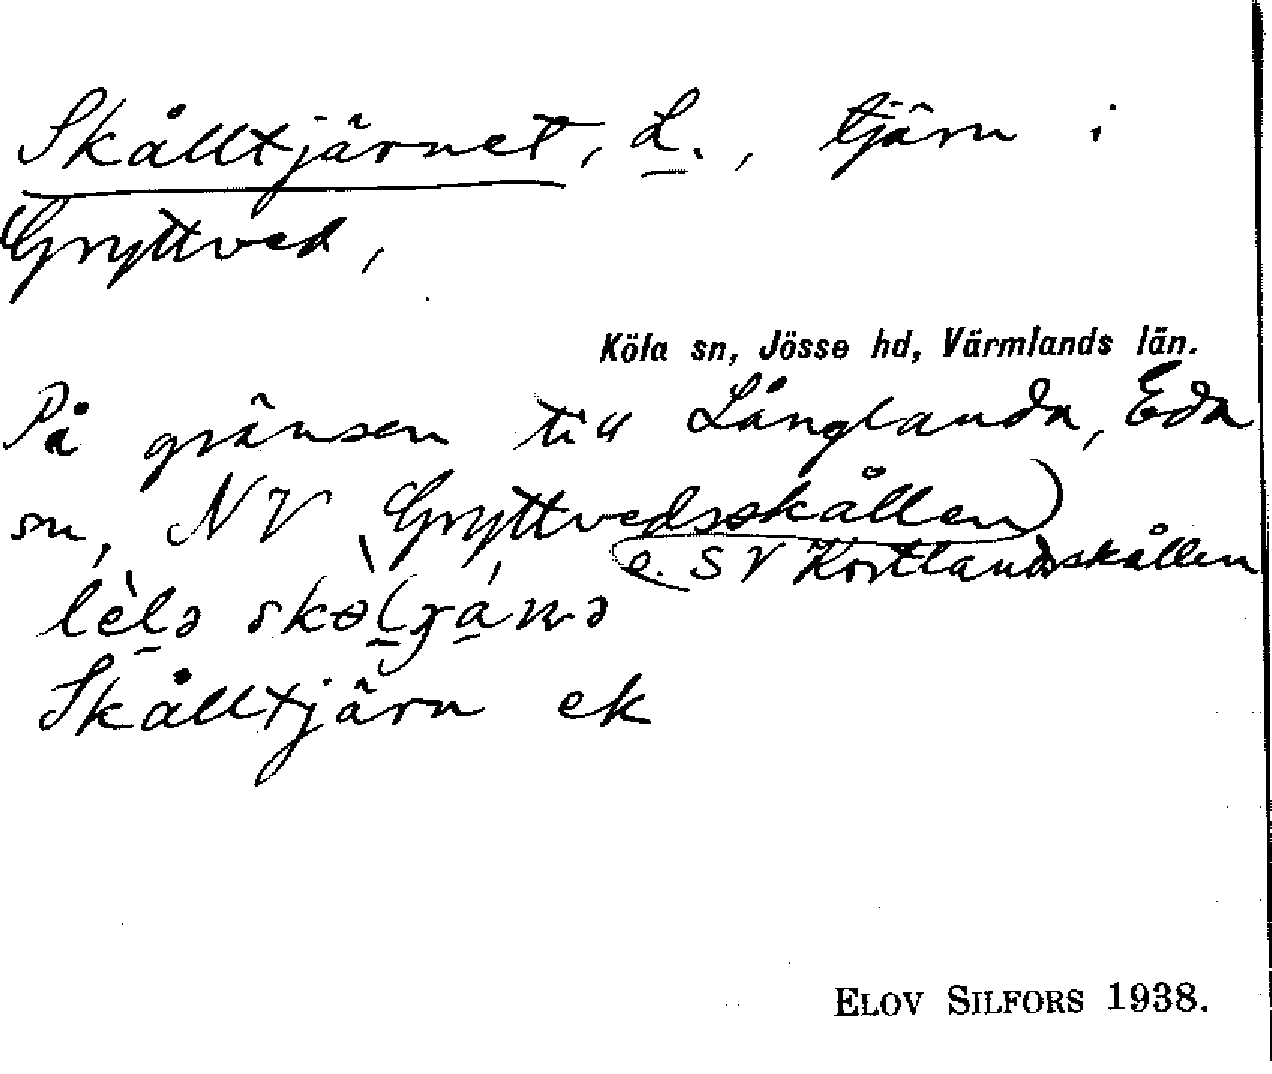 Skålltjärnet, L., tjärn i
Gryttved,
Köla sn, Jösse hd, Värmlands län.
På gränsen till Långlanda, Eda
sn, NV Gryttvedsskållen)
e. SV Kortlandsskållen
Skålltjärn ek
ELOV SILFORS 1938.